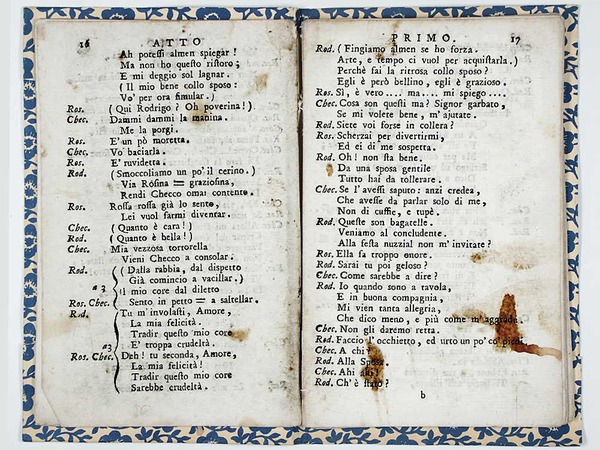 16 ATTO
Ah potessi almen spiegar!
Ma non ho questo ristoro;
E mi deggio sol lagnar.
(Il mio bene collo sposo:
Vo' per ora simular.)
Ros. (Qui Rodrigo? Oh poverina!)
Chec. Dammi dammi la manina.
Me la porgi.
Ros. E' un pò moretta.
Chec. Vo' baciarla.
Ros. E' ruvidetta.
Rod. (Smoccoliamo un po' il cerino.)
Via Rosina = graziosina,
Rendi Checco omai contento.
Ros. Rossa rossa già lo sento,
Lei vuol farmi diventar.
Chec. (Quanto è cara!)
Rod. (Quanto è bella!)
Chec. Mia vezzosa tortorella
Vieni Checco a consolar.
Rod. (Dalla rabbia, dal dispetto
Già comincio a vacillar.)
a 3 il mio core dal diletto
Ros. Chec. Sento in petto = a saltellar.
Rod. Tu m'involasti, Amore,
La mia felicità.
Tradir questo mio core
E' troppa crudeltà.
a 3
Ros. Chec. Deh! tu seconda, Amore,
La mia felicità!
Tradir questo mio core
Sarebbe crudeltà.
PRIMO. 17
Rod. (Fingiamo almen se ho forza.
Arte, e tempo ci vuol per acquistarla.)
Perchè fai la ritrosa collo sposo?
Egli è però bellino, egli è grazioso.
Ros. Sì, è vero.... ma.... mi spiego....
Chec. Cosa son questi ma? Signor garbato,
Se mi volete bene, m'ajutate.
Rod. Siete voi forse in collera?
Ros. Scherzai per divertirmi,
Ed ei di me sospetta.
Rod. Oh! non sta bene.
Da una sposa gentile
Tutto hai da tollerare.
Chec. Se l'avessi saputo: anzi credea,
Che avesse da parlar solo di me,
Non di cuffie, e tupè.
Rod. Queste son bagatelle.
Veniamo al concludente.
Alla festa nuzzial non m'invitate?
Ros. Ella fa troppo onore.
Rod. Sarai tu poi geloso?
Chec. Come sarebbe a dire?
Rod. Io quando sono a tavola,
E in buona compagnia,
Mi vien tanta allegria,
Che dico meno, e più come m'aggrada.
Chec. Non gli daremo retta.
Rod. Faccio l'occhietto, ed urto un po' co' piedi.
Chec. A chi?
Rod. Alla Sposa.
Chec. Ahi ahi!
Rod. Ch'è stato?
b